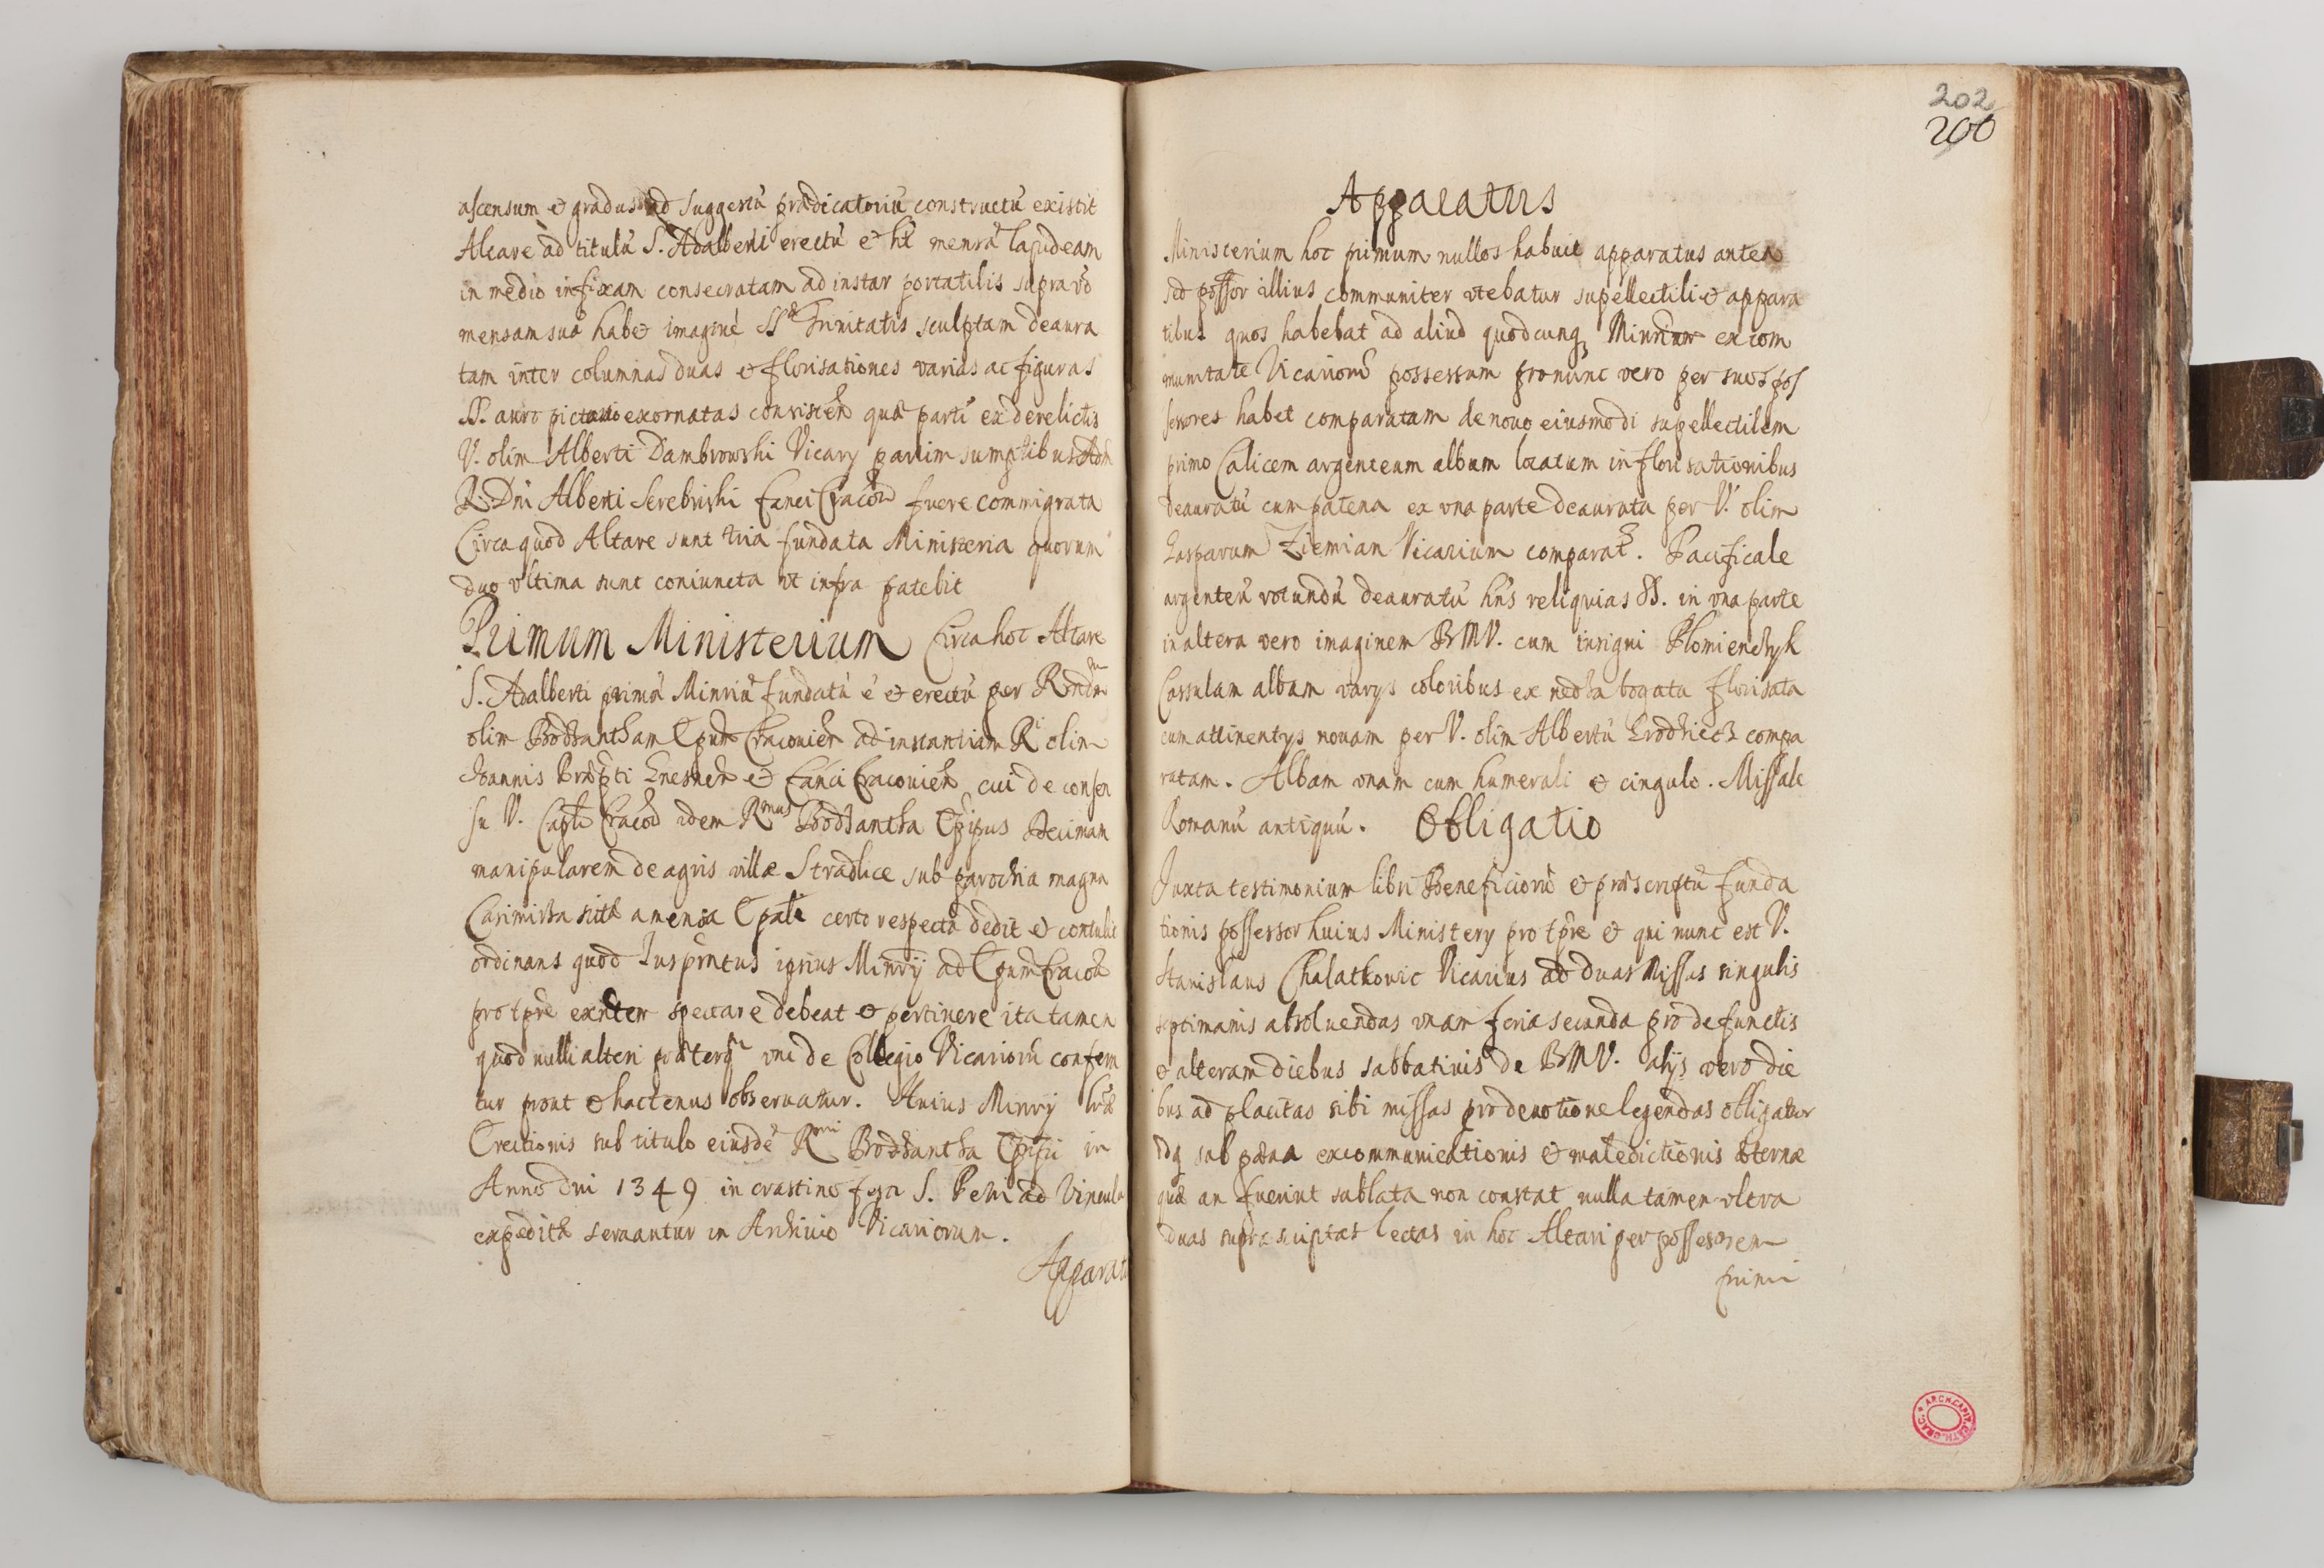 ascensum et gradus ad suggestũ prædicatoriũ constructũ existit
Altare ad titulũ S. Adalberti erectũ et ht mensã lapideam
in medio infixam consecratam ad instar portatilis supra vo
mensam suã habet imaginẽ SS Trinitatis sculptam deaura
tam inter columnas duas et florisationes varias ac figuras
SS. auro exornatas consisteñ quæ partĩ ex derelictis
V. olim Alberti Dambrowski Vicarij partim sumptibus Adm
R. Dni Alberti Serebriski Canci Cracoũ fuere commigrata
Circa quod Altare sunt tria fundata Ministeria quorum
duo ultima sunt coniuncta vt infra patebit
Primum Ministerium Circa hoc Altare
S. Adalberti primũ Minriũ fundatũ ẽ et erectũ per Rndm
olim Bodzantham Epum Cracovieñ ad instantiam R olim
Joannis Præpti Gnesneñ et Canci Cracovieñ cui de consen
su V. Capli Cracoũ idem Rmus Bodzantha Epipus Decimam
manipularem de agris villæ Stradlice sub parochia magna
Casimirza sitæ a mensa Epali certo respectu dedit et contulit
ordinans quod Juspřntus ipsius Minrij ad Epum Cracoũ
pro tpre exñten spectare debeat et pertinere ita tamen
quod nulli alteri præterq vni de Collegio Vicariorũ confera
tur prout et hactenus observatur. Huius Minrij lræ
Erectionis sub titulo eiusdẽ Rmi Bodzantha Epipi in
Anno Dni 1349 in crastino festi S. Petri ad Vincula
expeditæ servantur in Archivio Vicariorum.
Apparatu
202
200
Apparatus
Ministerium hoc primum nullos habuit apparatus antea
sed possor illius communiter vtebatur supellectili et appara
tibus quos habebat ad aliud quodcunq Minrium ex com
munitate Vicariorũ possessum pro nunc vero per suos pos
sessores habet comparatam de novo eiusmodi supellectilem
primo Calicem argenteum album locatum in florisationibus
deauratũ cum patena ex vna parte deaurata per V. olim
Gasparum Ziemian Vicarium comparat. Pacificale
argenteũ rotundũ deauratũ hñs reliquias SS. in vna parte
in altera vero imaginem BMV. cum insigni Plomienczyk
Cassulam albam varijs coloribus ex netka bogata florisata
cum attinentijs novam per V. olim Albertũ Grodziecz compa
ratam. Albam vnam cum humerali et cingulo. Missale
Romanũ antiquũ. Obligatio
Juxta testimonium libri Beneficiorũ et præscriptũ funda
tionis possessor huius Ministerij pro tpre et qui nunc est V.
Stanislaus Chalatkovic Vicarius ad duas Missas singulis
septimanis absolvendas vnam feria secunda pro defunctis
et alteram diebus sabbativis de BMV. alijs vero die
bus ad placitas sibi missas pro devotione legendas obligatur
Idq sub pæna excommunicationis et maledictionis æternæ
quæ an fuerint sublata non constat nulla tamen vltra
duas suprascriptas lectas in hoc Altari per possessorem
primi
ARCH. CAPIT. CATH. CRAC.